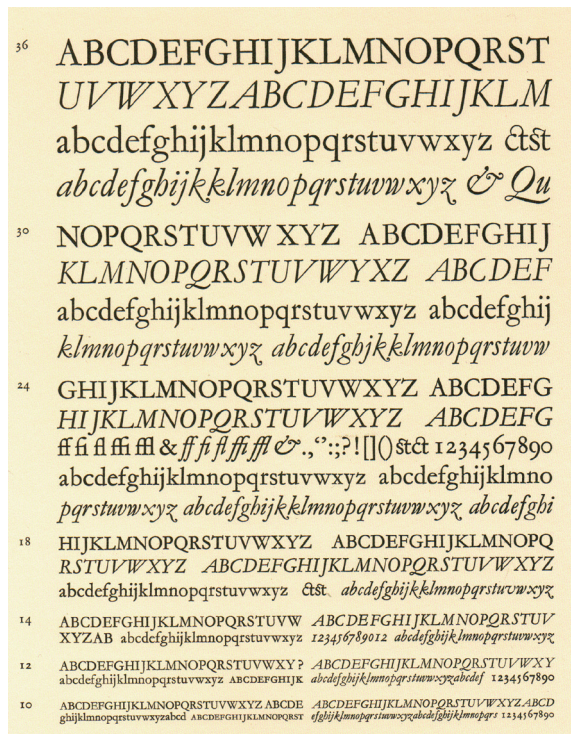 36 ABCDEFGHIJKLMNOPQRST
UVWXYZABCDEFGHIJKLM
abcdefghijklmnopqrstuvwxyz ctst
abcdefghijkklmnopqrstuvwxyz & Qu
30 NOPQRSTUVWXYZ ABCDEFGHIJ
KLMNOPQRSTUVWYXZ ABCDEF
abcdefghijklmnopqrstuvwxyz abcdefghij
klmnopqrstuvwxyz abcdefghijkklmnopqrstuvw
24 GHIJKLMNOPQRSTUVWXYZ ABCDEFG
HIJKLMNOPQRSTUVWXYZ ABCDEFG
ff fi fl ffi ffl & ff fi fl ffi ffl & . , ‘ ’ : ; ? ! [ ] ( ) st ct 1234567890
abcdefghijklmnopqrstuvwxyz abcdefghijklmno
pqrstuvwxyz abcdefghijkklmnopqrstuvwxyz abcdefghi
18 HIJKLMNOPQRSTUVWXYZ ABCDEFGHIJKLMNOPQ
RSTUVWXYZ ABCDEFGHIJKLMNOPQRSTUVWXYZ
abcdefghijklmnopqrstuvwxyz ctst abcdefghijkklmnopqrstuvwxyz
14 ABCDEFGHIJKLMNOPQRSTUVW ABCDEFGHIJKLMNOPQRSTUV
XYZAB abcdefghijklmnopqrstuvwxyz 123456789012 abcdefghijkklmnopqrstuvwxyz
12 ABCDEFGHIJKLMNOPQRSTUVWXY? ABCDEFGHIJKLMNOPQRSTUVWXY
abcdefghijklmnopqrstuvwxyz ABCDEFGHIJK abcdefghijkklmnopqrstuvwxyzabcdef 1234567890
10 ABCDEFGHIJKLMNOPQRSTUVWXYZ ABCDE ABCDEFGHIJKLMNOPQRSTUVWXYZABCD
ghijklmnopqrstuvwxyzabcd ABCDEFGHIJKLMNOPQRST efghijkklmnopqrstuvwxyzabcdefghijkklmnopqrs 1234567890